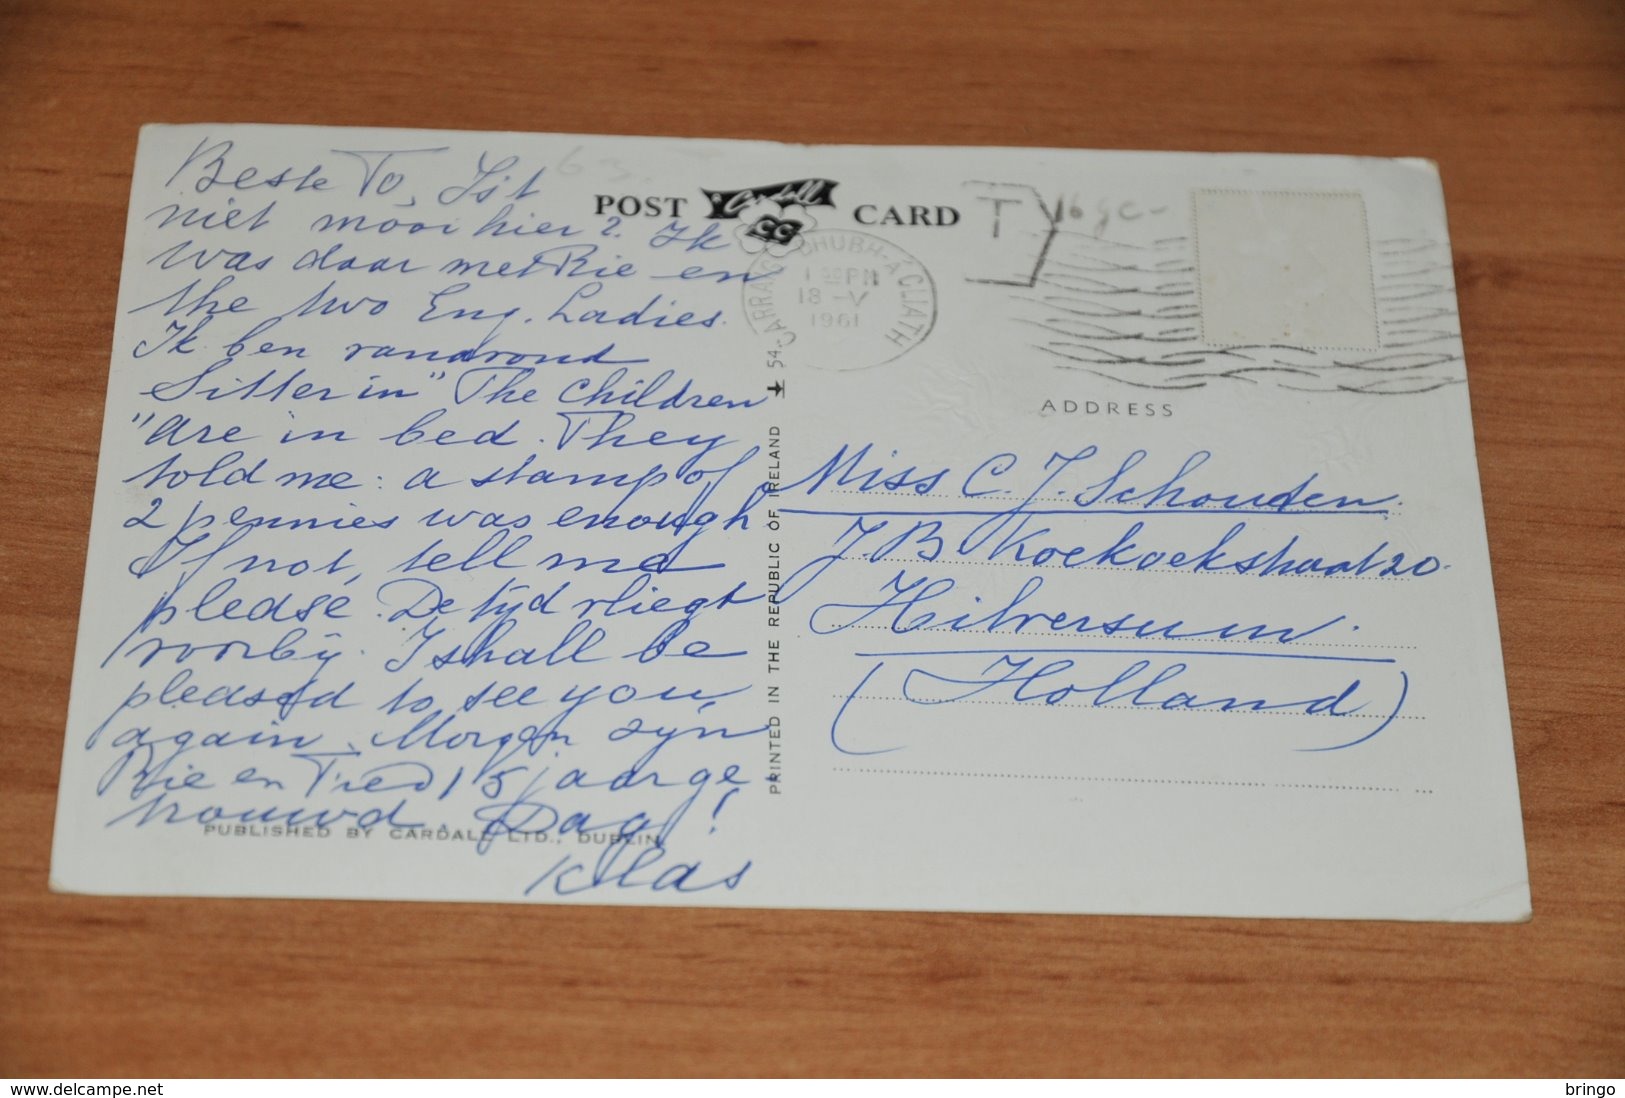 Beste To, Is 't
niet mooi hier? Ik
was daar met Rie en
the two Eng. Ladies.
Ik ben vanavond
Sitter in" The Children
"are in bed. They
told me: a stamp of
2 pennies was enough
If not, tell me
please. De tyd vliegt
voorby. I shall be
pleased to see you,
again. Morgen zyn
Rie en 15 jaar ge
trouwd. Dag!
Klas
PUBLISHED BY CARDALL LTD., DUBLIN
POST CARD
Cardall
CC
PRINTED IN THE REPUBLIC OF IRELAND
54
BHUBH-A CLIATH
PM
18 V
1961
T
ADDRESS
Miss C. J. Schouden.
J. B Koekoekstraat 20.
Hilversum.
(Holland)
www.delcampe.net
bringo